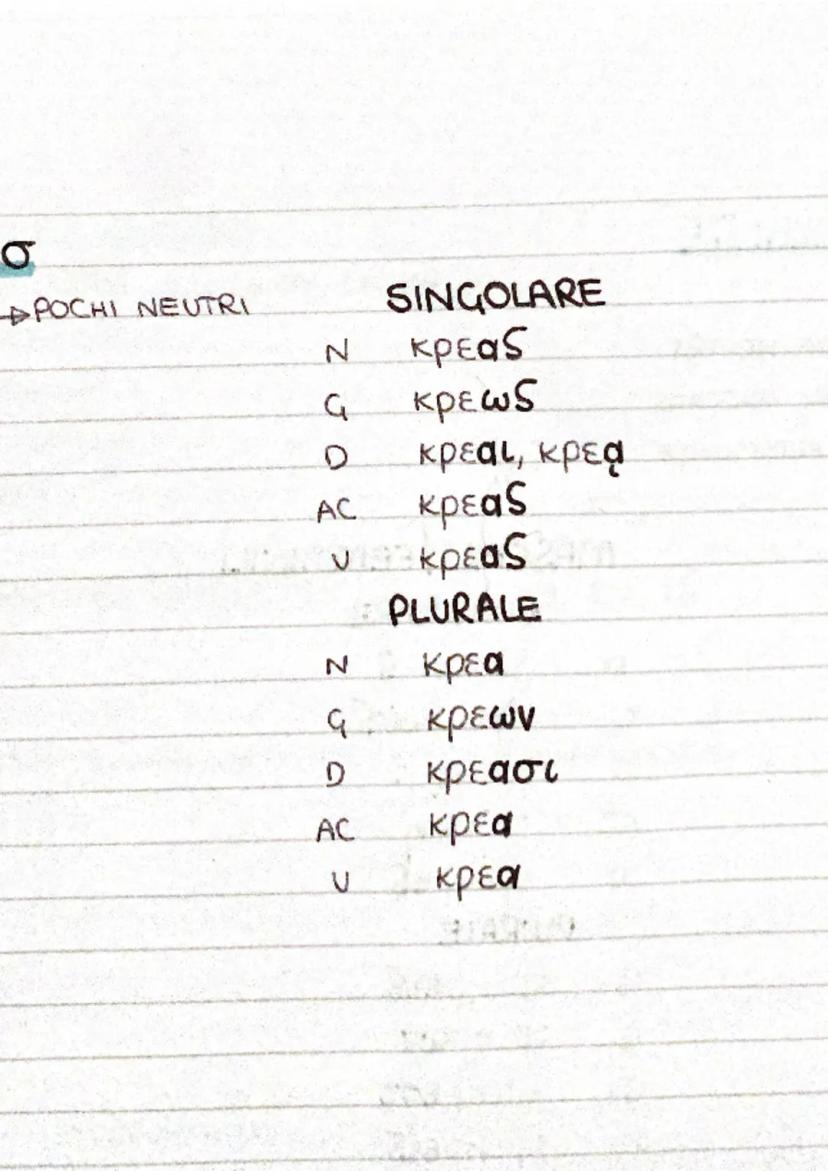 σ
→POCHI NEUTRI
SINGOLARE
N κρεας
G κρεως
D κρεαι, κρεᾳ
AC κρεας
V κρεας
PLURALE
N κρεα
G κρεων
D κρεασι
AC κρεα
V κρεα